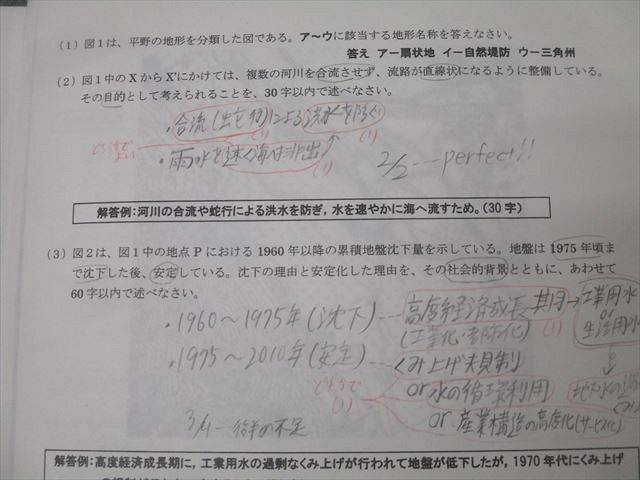 (1) 図1は、平野の地形を分類した図である。ア～ウに該当する地形名称を答えなさい。
答え ア－扇状地 イ－自然堤防 ウ－三角州
(2) 図1中のXからX'にかけては、複数の河川を合流させず、流路が直線状になるように整備している。
その目的として考えられることを、30字以内で述べなさい。
・合流(蛇行)による洪水を防ぐ
(1) (1)
どちらかで よい
・雨水を速く海に排出
(1)
2/2 --- perfect!!
解答例：河川の合流や蛇行による洪水を防ぎ，水を速やかに海へ流すため。(30字)
(3) 図2は、図1中の地点Pにおける1960年以降の累積地盤沈下量を示している。地盤は1975年頃ま
で沈下した後、安定している。沈下の理由と安定化した理由を、その社会的背景とともに、あわせて
60字以内で述べなさい。
・1960～1975年(沈下)---高度経済成長期→工業用水
(工業化・都市化) (1) or 生活用水
・1975～2010年(安定)---くみ上げ規制
↓
or 水の循環利用 地下水の
(1)
or 産業構造の高度化(サービス化)
3/4 --- 後半の不足
解答例：高度経済成長期に，工業用水の過剰なくみ上げが行われて地盤が低下したが，1970年代にくみ上げ